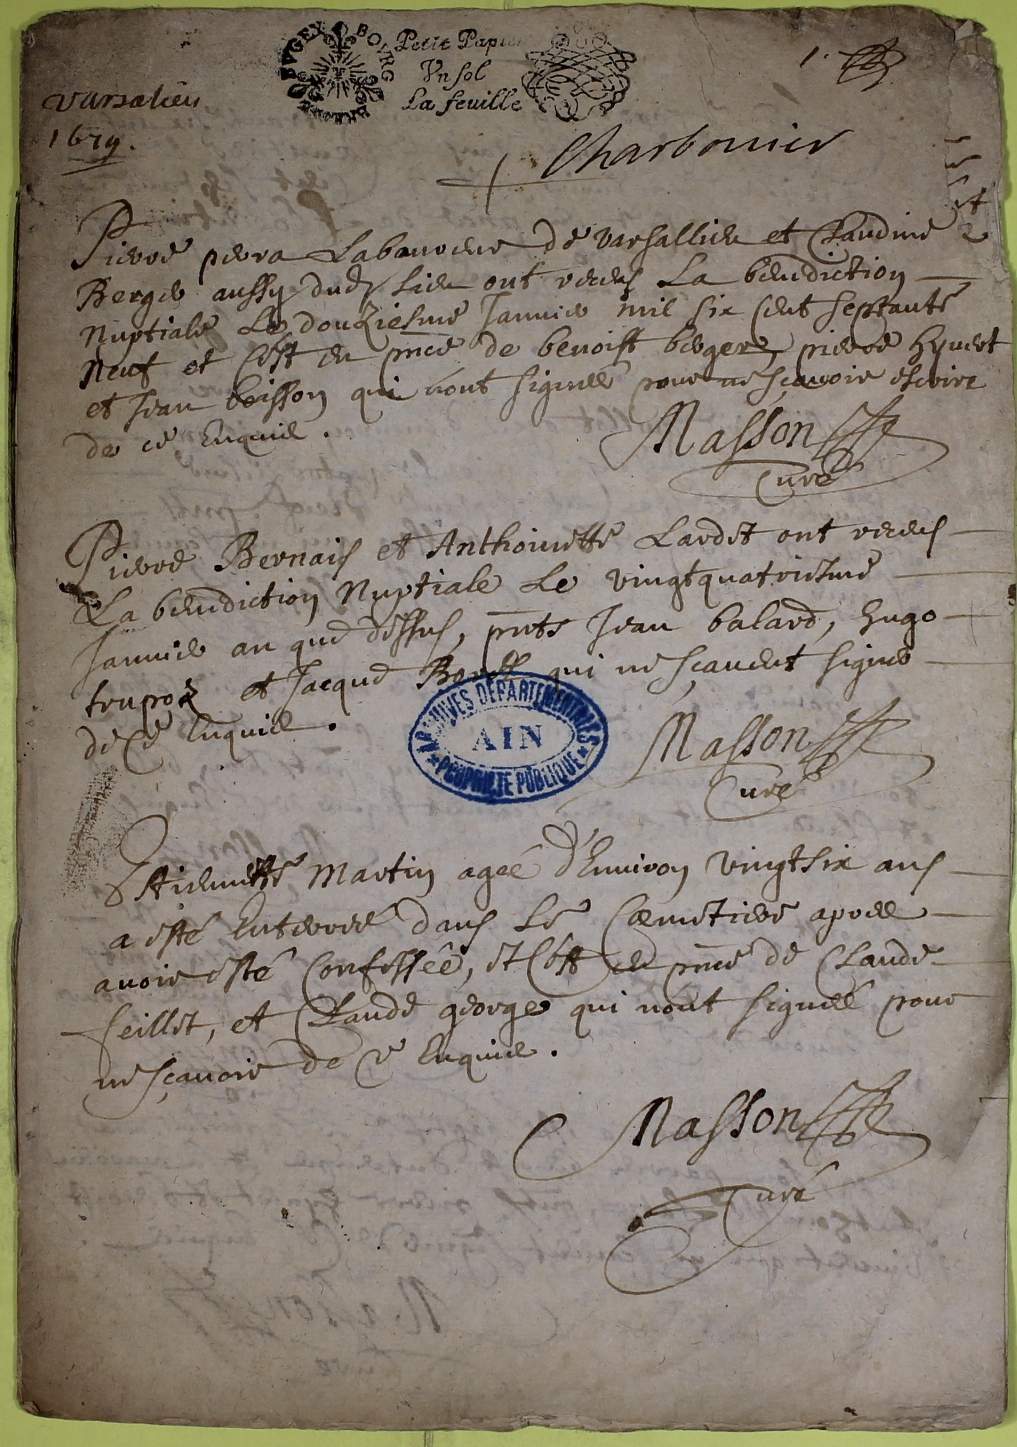 BVGEX BOVRG
Petit Papier
Vn sol
La feuille
1.
Varsalieu
1679.
Charbonnier
Pierre perra Labanniere de Varsallieu et Claudine
Berger aussy dud. lieu ont receus La benediction
Nuptiale Le douziesme Janvier mil six cent septante
Neuf et C'est en pnce de benoist berger, pierre hyvert
et Jean boisson qui n'ont signéé pour ne sçavoir escrire
de ce Enquis.
Masson
Curé
Pierre Bernais et Anthoinette Lardet ont receus
La benediction Nuptiale Le vingtquatriesme
Janvier an que dessus, pnts Jean balard, hugo
et Jacque qui ne sçavent signer
de Ce Enquis.
ARCHIVES DÉPARTEMENTALES
AIN
PROPRIÉTÉ PUBLIQUE
Masson
Curé
Estiennette Martin ageé d'Environ vingtsix ans
a esté Enterreé dans Le Cœmetiere apres
avoir esté Confesseé, et C'est en pnce de Claude
feillet, et Claude george qui n'ont signéé pour
ne sçavoir de Ce Enquis.
Masson
Curé